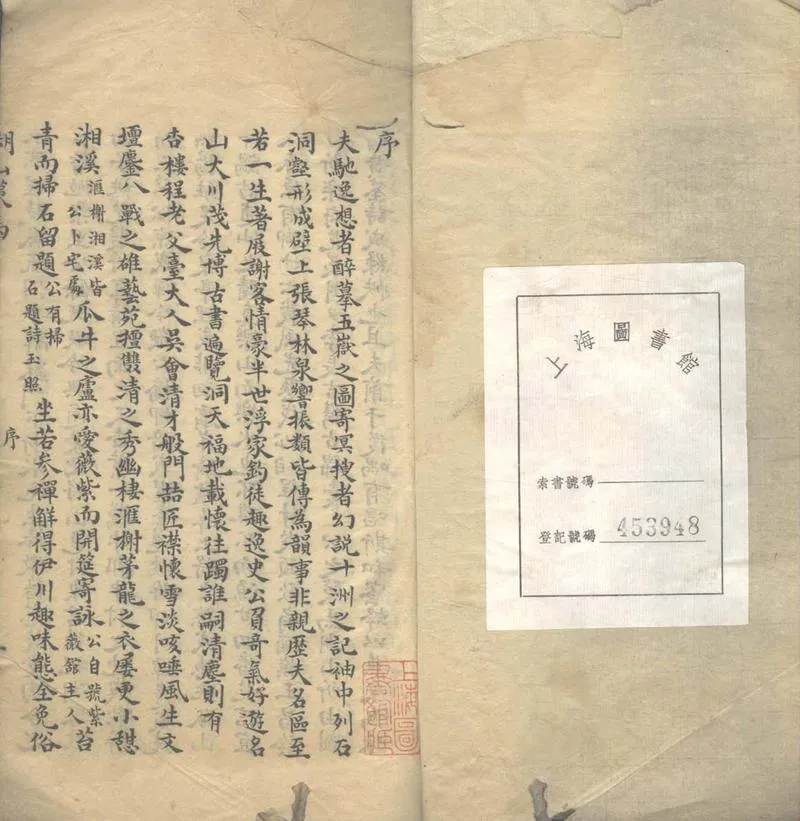 上海圖書館
索書號碼
登記號碼 453948
序
夫馳逸想者醉摹五嶽之圖寄冥搜者幻說十洲之記袖中列石
洞壑形成壁上張琴林泉響振類皆傳為韻事非親歷夫名區至
若一生著屐謝客情豪半世浮家釣徒趣逸史公負奇氣好遊名
山大川茂先博古書遍覽洞天福地載懷往躅誰嗣清塵則有
杏樓程老父臺大人吳會清才般門喆匠襟懷雪淡咳唾風生文
壇鏖八戰之雄藝苑擅雙清之秀幽棲滙榭茅龍之衣屢更小憩
湘溪滙榭湘溪皆公卜宅處瓜牛之廬亦愛薇紫而開筵寄詠公自號紫薇館主人苔
青而掃石留題公有掃石題詩玉照坐若參禪解得伊川趣味態全免俗
序
上海圖書館藏